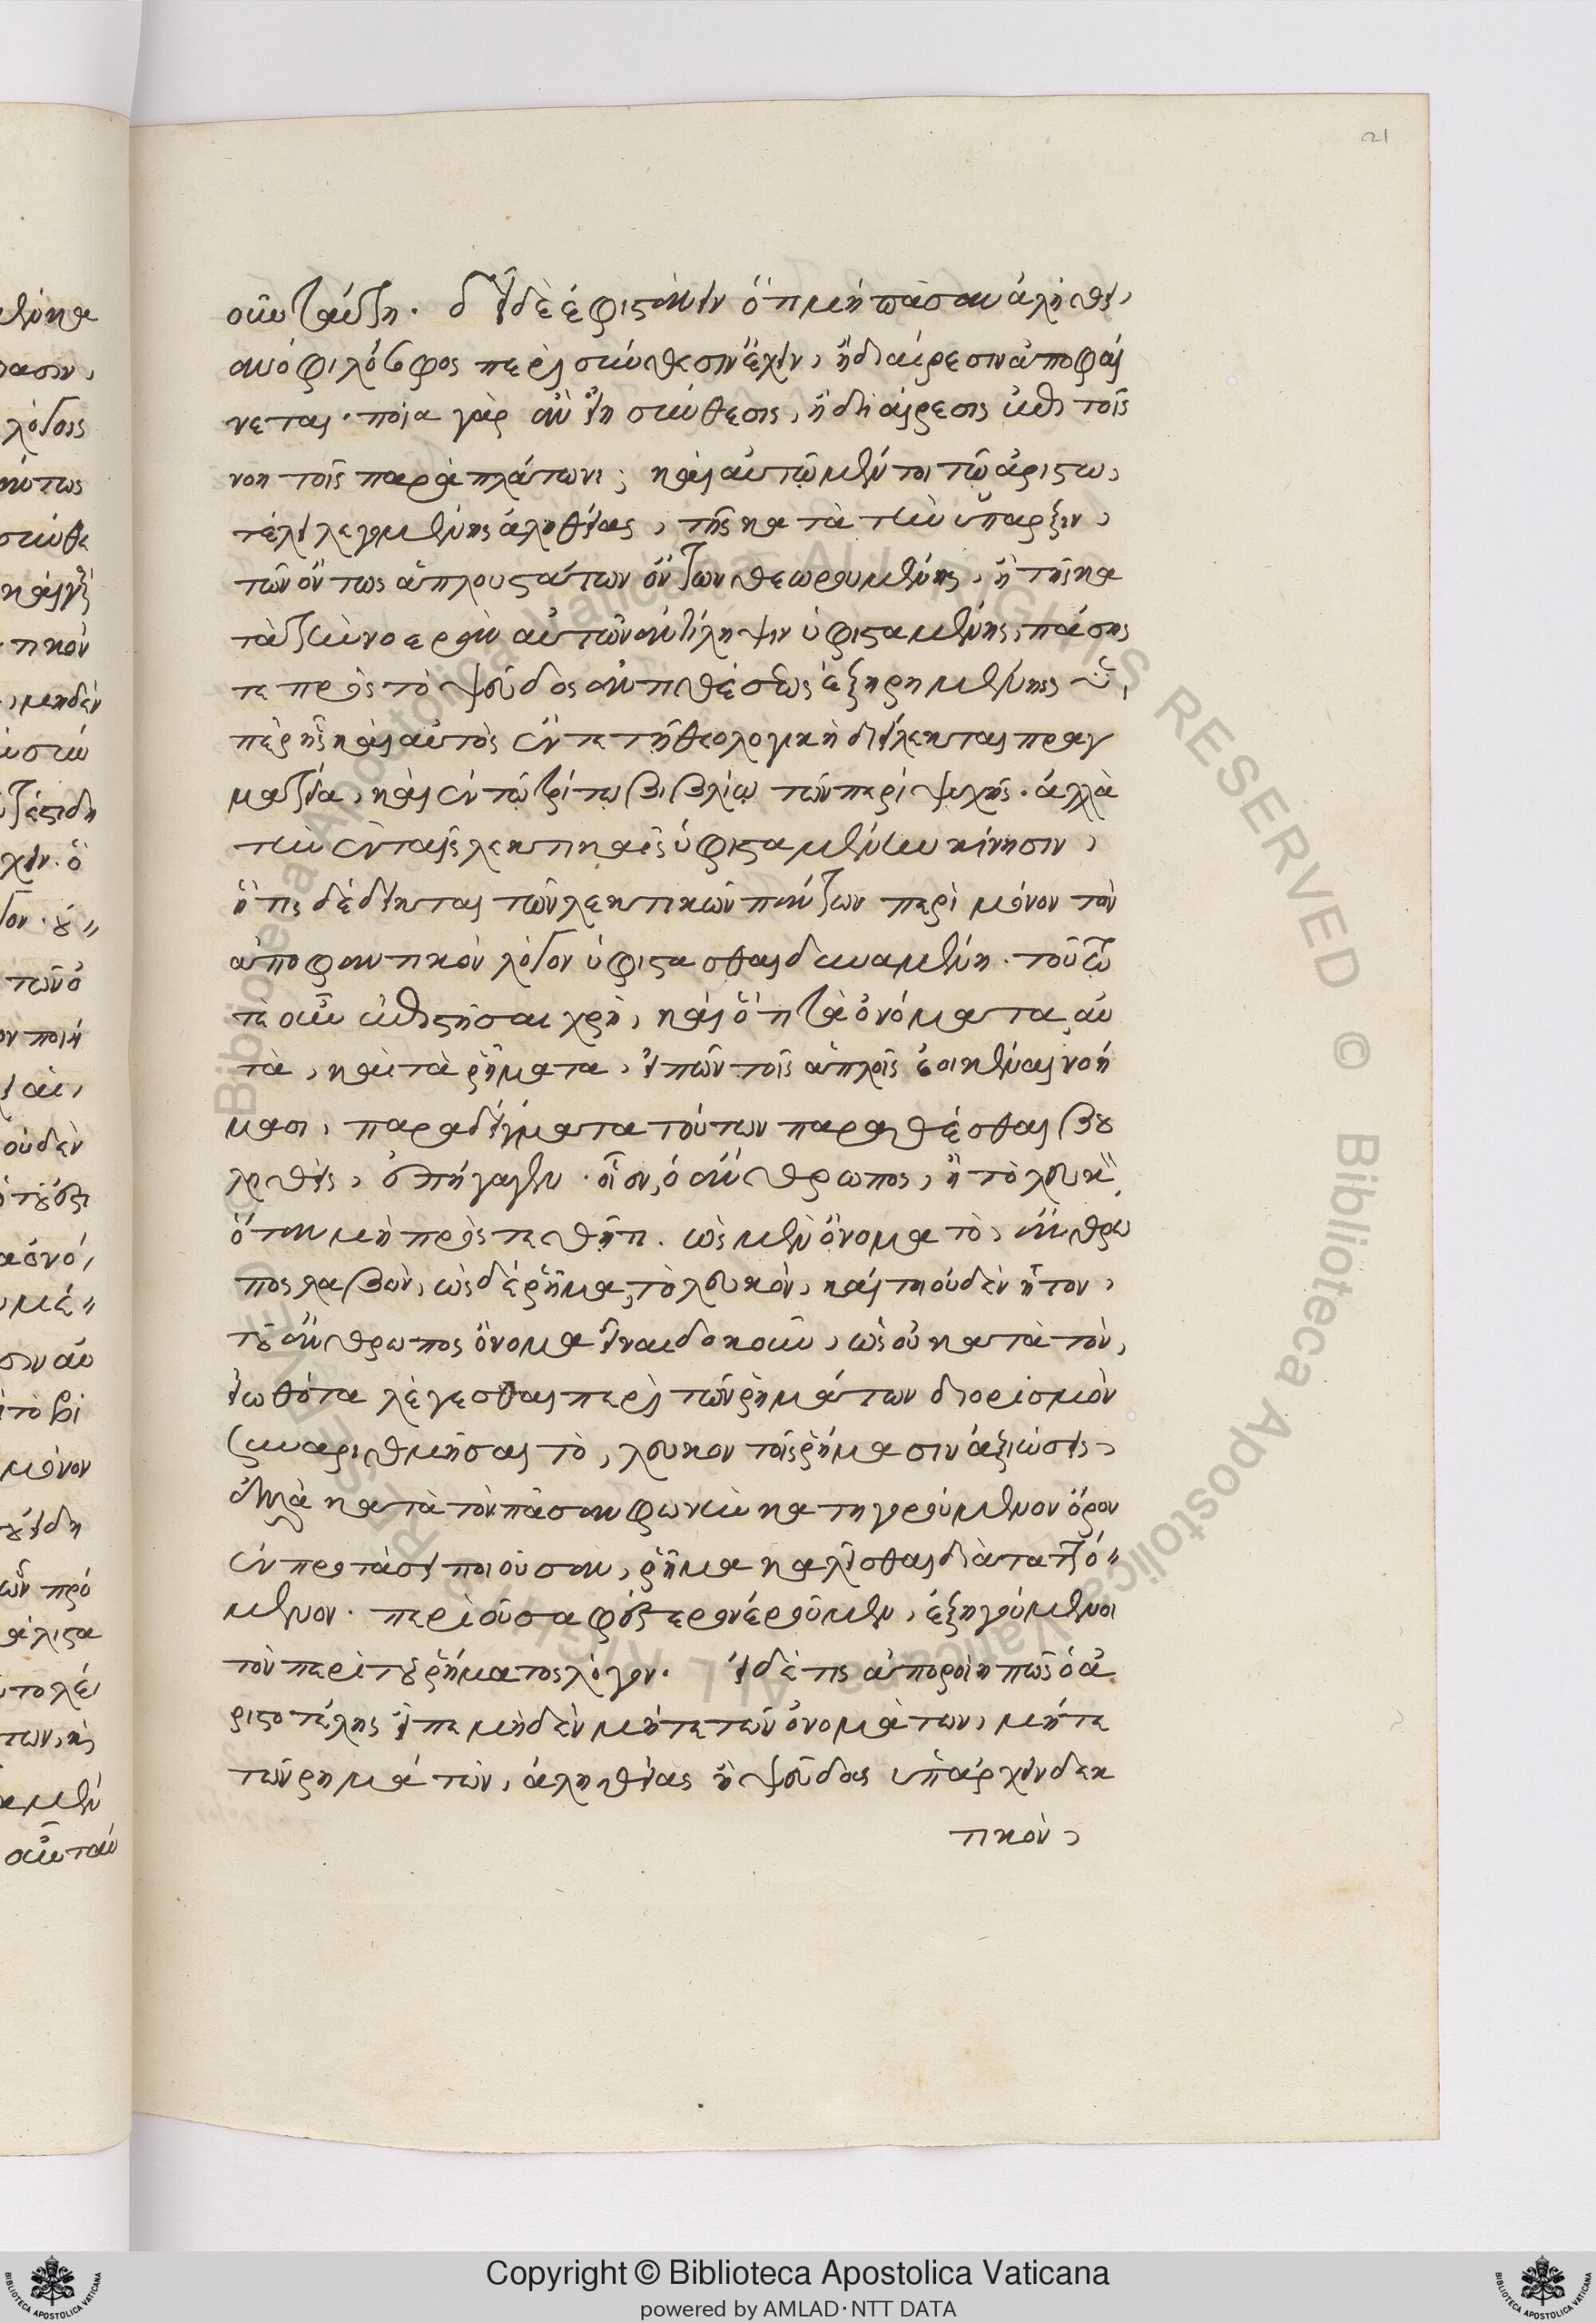 21
οὖν ταύτῃ. δεῖ δὲ ἐφιστάνειν ὅτι μὴ πᾶσαν ἀλήθει
αν ὁ φιλόσοφος περὶ σύνθεσιν ἔχειν, ἢ διαίρεσιν ἀποφαί
νεται. ποία γὰρ ἂν εἴη σύνθεσις, ἢ διαίρεσις ἐπὶ τοῖς
νοη τοῖς παρὰ πλάτωνι; καὶ αὐτῶ μέν τοι τῶ ἀριστο
τέλει λεγομένης ἀληθείας, τῆς κα τὰ τὴν ὕπαρξιν,
τῶν ὄντως ἁπλουστάτων ὄντων θεωρουμένης, ἢ τῆς κα
τὰ τὴν νοερὰν αὐτῶν ἀντίληψιν ὑφισταμένης, πάσης
τε πρὸς τὸ ψεῦδος ἀντιθέσεως ἐξηρημένης ὑ
πὲρ ἧς καὶ αὐτὸς ἔν τε τῆ θεολογικῆ διείλεκται πραγ
ματεία, καὶ ἐν τῶ τρίτω βιβλίω τῶν περὶ ψυχῆς. ἀλλὰ
τὴν ἐν ταῖς λεκτικαῖς ὑφισταμένην κίνησιν,
ἥ τις δέδεικται τῶν λεκτικῶν πάντων περὶ μόνον τὸν
ἀποφαντικὸν λόγον ὑφίστασθαι δυναμένη. τοῦτό
τε οὖν ἐπιστῆσαι χρὴ, καὶ ὅτι τὰ ὀνόματα αὐ
τὰ, καὶ τὰ ῥήματα, εἰπὼν τοῖς ἁπλοῖς ἐοικέναι νοή
μασι, παραδείγματα τούτων παραθέσθαι βου
ληθεὶς, ἐπήγαγεν. οἷον, ὁ ἄνθρωπος, ἢ τὸ λευκὸν
ὅταν μὴ πρὸς τεθῆ τι. ὡς μὲν ὄνομα τὸ, ἄνθρω
πος λαβὼν, ὡς δὲ ῥῆμα, τὸ λευκὸν, καί τοι οὐδὲν ἧττον,
τοῦ ἄνθρωπος ὄνομα εἶναι δοκοῦν, ὡς οὐ κατὰ τὸν,
εἰωθότα λέγεσθαι περὶ τῶν ῥημάτων διορισμὸν
συναριθμῆσαι τὸ, λευκὸν τοῖς ῥήμασιν ἀξιώσεις,
ἀλλὰ κατὰ τὸν πᾶσαν φωνὴν κατηγορούμενον ὅρον
ἐν προτάσει ποιοῦσαν, ῥῆμα καλεῖσθαι διαταττό
μενον. περὶ οὗ σαφέστερον ἐροῦμεν, ἐξηγούμενοι
τὸν περὶ τοῦ ῥήματος λόγον. εἰ δέ τις ἀποροίη πῶς ὁ ἀ
ριστοτέλης εἶπε μηδὲν μήτε τῶν ὀνομάτων, μήτε
τῶν ῥημάτων, ἀληθείας ἢ ψεύδους ὑπάρχειν δεκ
τικὸν,
Copyright © Biblioteca Apostolica Vaticana
powered by AMLAD·NTT DATA